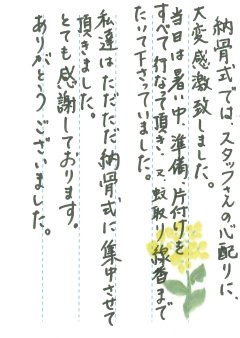 納骨式では、スタッフさんの心配りに、
大変感激致しました。
当日は暑い中 準備、片付けを
すべて行なって頂き、又、蚊取り線香まで
たいて下さっていました。
私達はただただ納骨式に集中させて
頂きました。
とても感謝しております。
ありがとうございました。